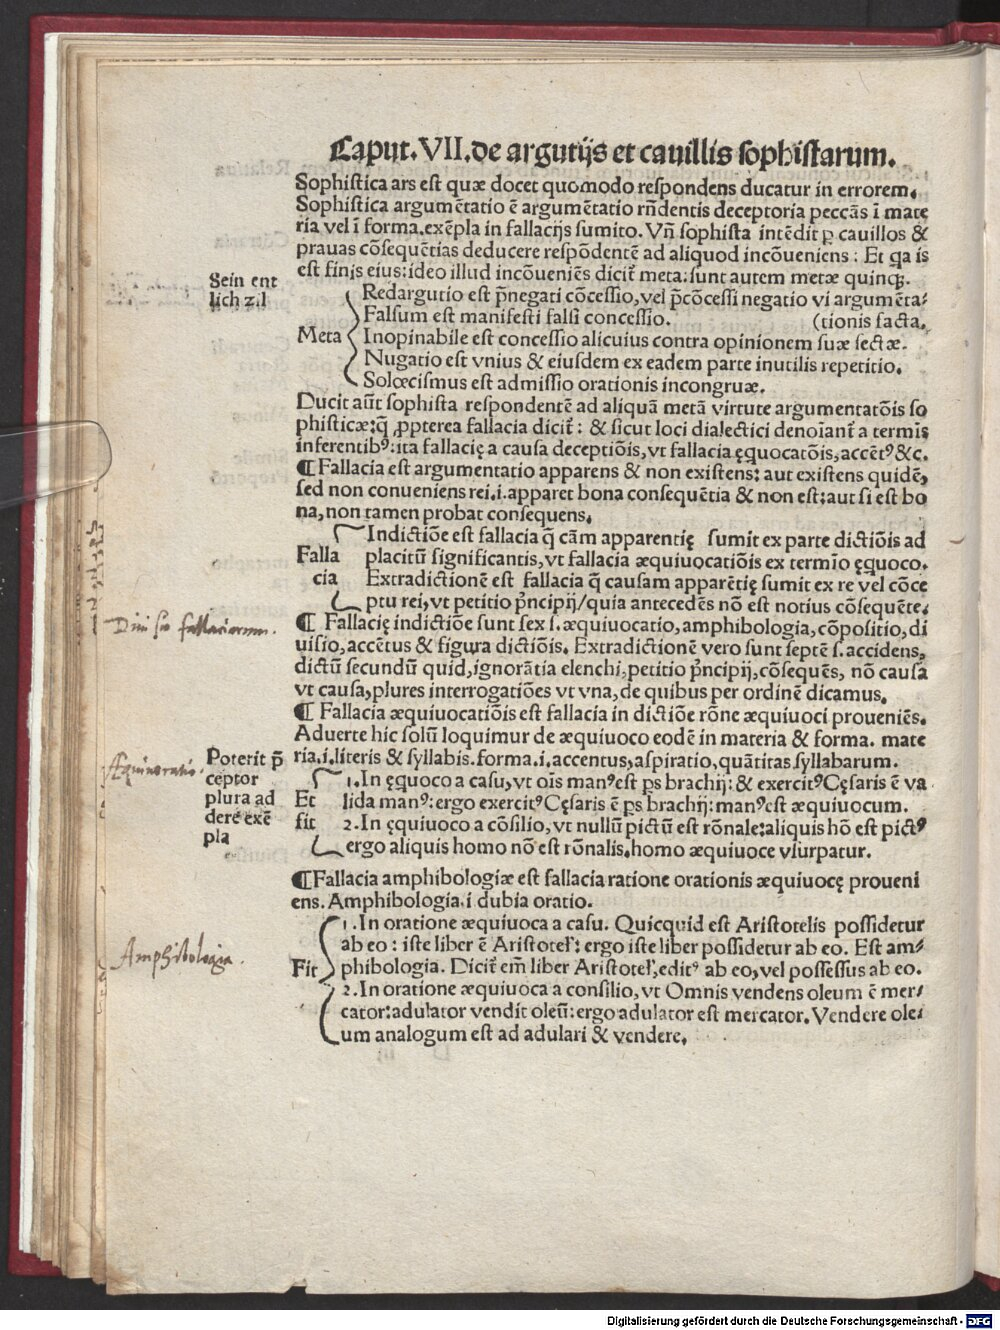 Caput. VII. de argutijs et cauillis sophistarum.
Sophistica ars est quæ docet quomodo respondens ducatur in errorem.
Sophistica argumētatio ē argumētatio rn̄dentis deceptoria peccās ī mate
ria vel ī forma. exēpla in fallacijs sumito. Vn̄ sophista intēdit ꝑ cauillos &
prauas cōsequētias deducere respōdentē ad aliquod incōueniens: Et qa is
est finis eius: ideo illud incōueniēs dicit̄ meta: sunt autem metæ quinqꝫ.
Sein ent
lich zil
Meta
Redargutio est p̄negati cōcessio, vel p̄cōcessi negatio vi argumēta⸗
Falsum est manifesti falsi concessio. (tionis facta.
Inopinabile est concessio alicuius contra opinionem suæ sectæ.
Nugatio est vnius & eiusdem ex eadem parte inutilis repetitio.
Solœcismus est admissio orationis incongruæ.
Ducit aūt sophista respondentē ad aliquā metā virtute argumentatōis so
phisticæ: q̄ ꝓpterea fallacia dicit̄: & sicut loci dialectici denoīant̄ a termīs
inferentibꝰ: ita fallacię a causa deceptiōis, vt fallacia ęquocatōis, accētꝰ &c.
¶ Fallacia est argumentatio apparens & non existens: aut existens quidē,
sed non conueniens rei. i. apparet bona consequētia & non est: aut si est bo
na, non tamen probat consequens.
Falla
cia
Indictiōe est fallacia q̄ cām apparentię sumit ex parte dictiōis ad
placitū significantis, vt fallacia æquiuocatiōis ex termīo ęquoco.
Extradictionē est fallacia q̄ causam apparētię sumit ex re vel cōce
ptu rei, vt petitio p̄ncipij/quia antecedēs nō est notius cōsequēte.
¶ Fallacię indictiōe sunt sex s. æquiuocatio, amphibologia, cōpositio, di
uisio, accētus & figura dictiōis. Extradictionē vero sunt septē s. accidens,
dictū secundū quid, ignorātia elenchi, petitio p̄ncipij, cōsequēs, nō causa
vt causa, plures interrogatiōes vt vna, de quibus per ordinē dicamus.
fallaciarum.
¶ Fallacia æquiuocatiōis est fallacia in dictiōe rōne æquiuoci proueniēs.
Aduerte hic solū loquimur de æquiuoco eodē in materia & forma. mate
ria. i. literis & syllabis. forma. i. accentus, aspiratio, quātitas syllabarum.
Æquiuocatio.
Poterit p̄
ceptor
plura ad
dere exē
pla
Et
fit
1. In ęquoco a casu, vt oīs manꝰ est ps brachij: & exercitꝰ Cęsaris ē va
lida manꝰ: ergo exercitꝰ Cęsaris ē ps brachij: manꝰ est æquiuocum.
2. In ęquiuoco a cōsilio, vt nullū pictū est rōnale: aliquis hō est pictꝰ
ergo aliquis homo nō est rōnalis. homo æquiuoce vsurpatur.
¶ Fallacia amphibologiæ est fallacia ratione orationis æquiuocę proueni
ens. Amphibologia. i dubia oratio.
Amphibologia.
Fit
1. In oratione æquiuoca a casu. Quicquid est Aristotelis possidetur
ab eo: iste liber ē Aristotel̄: ergo iste liber possidetur ab eo. Est am⸗
phibologia. Dicit̄ em̄ liber Aristotel̄, editꝰ ab eo, vel possessus ab eo.
2. In oratione æquiuoca a consilio, vt Omnis vendens oleum ē mer⸗
cator: adulator vendit oleū: ergo adulator est mercator. Vendere ole⸗
um analogum est ad adulari & vendere.
Digitalisierung gefördert durch die Deutsche Forschungsgemeinschaft - DFG